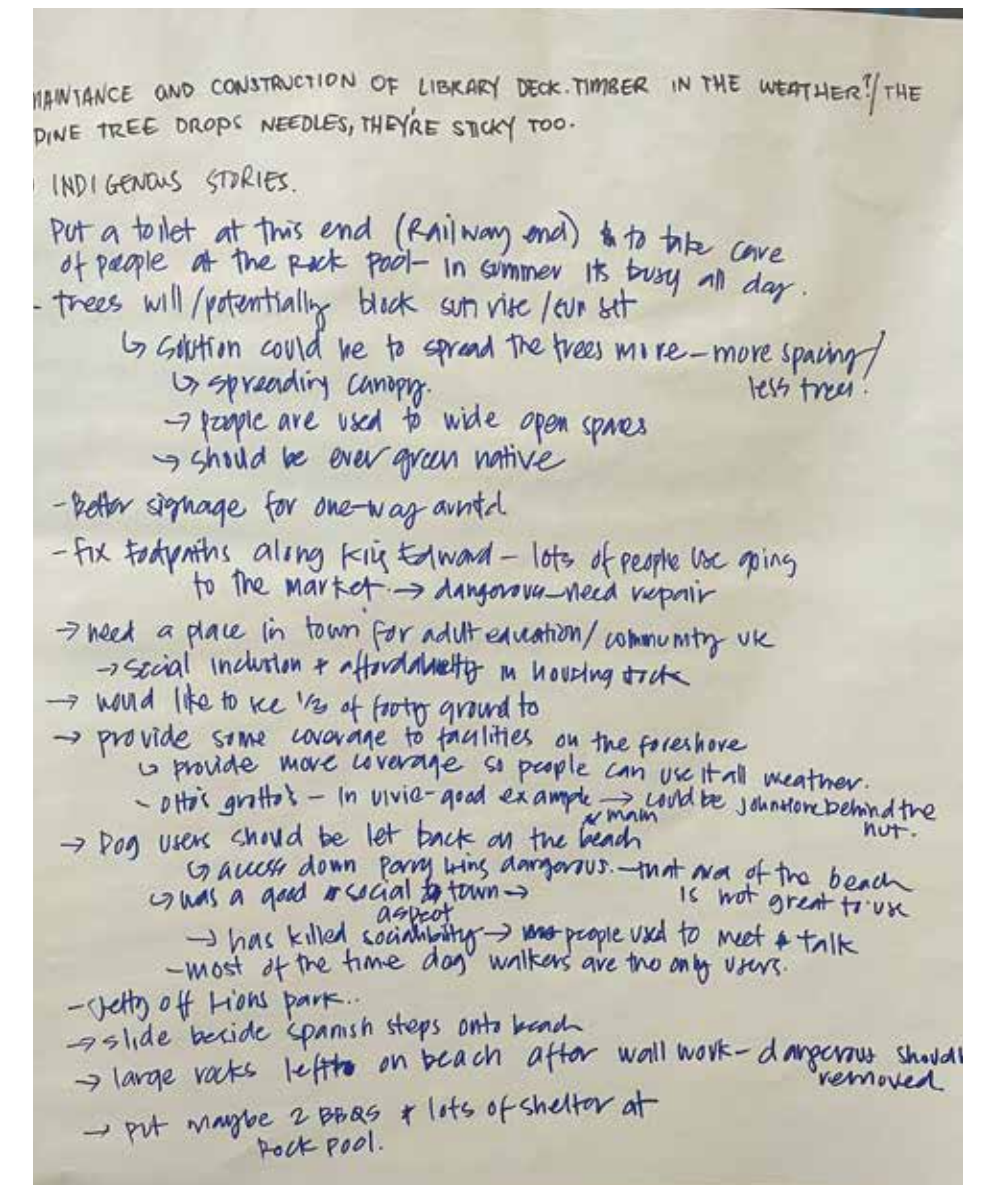 MAINTANCE AND CONSTRUCTION OF LIBRARY DECK. TIMBER IN THE WEATHER?/THE
PINE TREE DROPS NEEDLES, THEY'RE STICKY TOO.
INDIGENOUS STORIES.
Put a toilet at this end (Railway end) to take care
of people at the Rock Pool- in summer its busy all day.
- trees will/potentially block sun rise/sun set
↳ Solution could be to spread the trees more - more spacing/
less trees?
↳ spreading canopy.
→ people are used to wide open spaces
→ should be ever green native
- Better signage for one-way
- fix footpaths along King Edward - lots of people use going
to the market. → dangerous - need repair
→ need a place in town for adult education/community use
→ social inclusion + affordability in housing stock
→ would like to see 1/3 of footy ground to
→ provide some coverage to facilities on the foreshore
↳ provide more coverage so people can use it all weather.
- Otto's grotto's - In vivid - good example → could be behind the
hut.
→ Dog users should be let back on the main beach
↳ access down dangerous. - that area of the beach
is not great to use
↳ has a good social aspect to town →
→ has killed sociability → people used to meet & talk
- most of the time dog walkers are the only users.
- Jetty off Lions park..
→ slide beside spanish steps onto beach
→ large rocks left on beach after wall work - dangerous should
removed
→ put maybe 2 BBQS & lots of shelter at
Rock Pool.